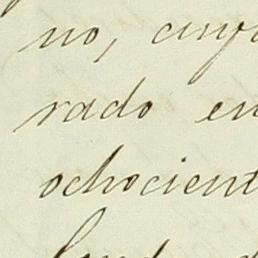 no, cuya
rado en
ochocient